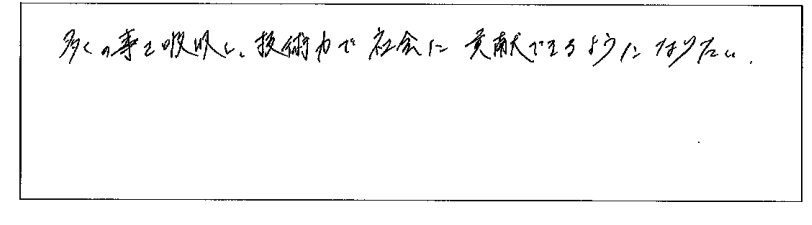 多くの事を吸収し、技術力で社会に貢献できるようになりたい.